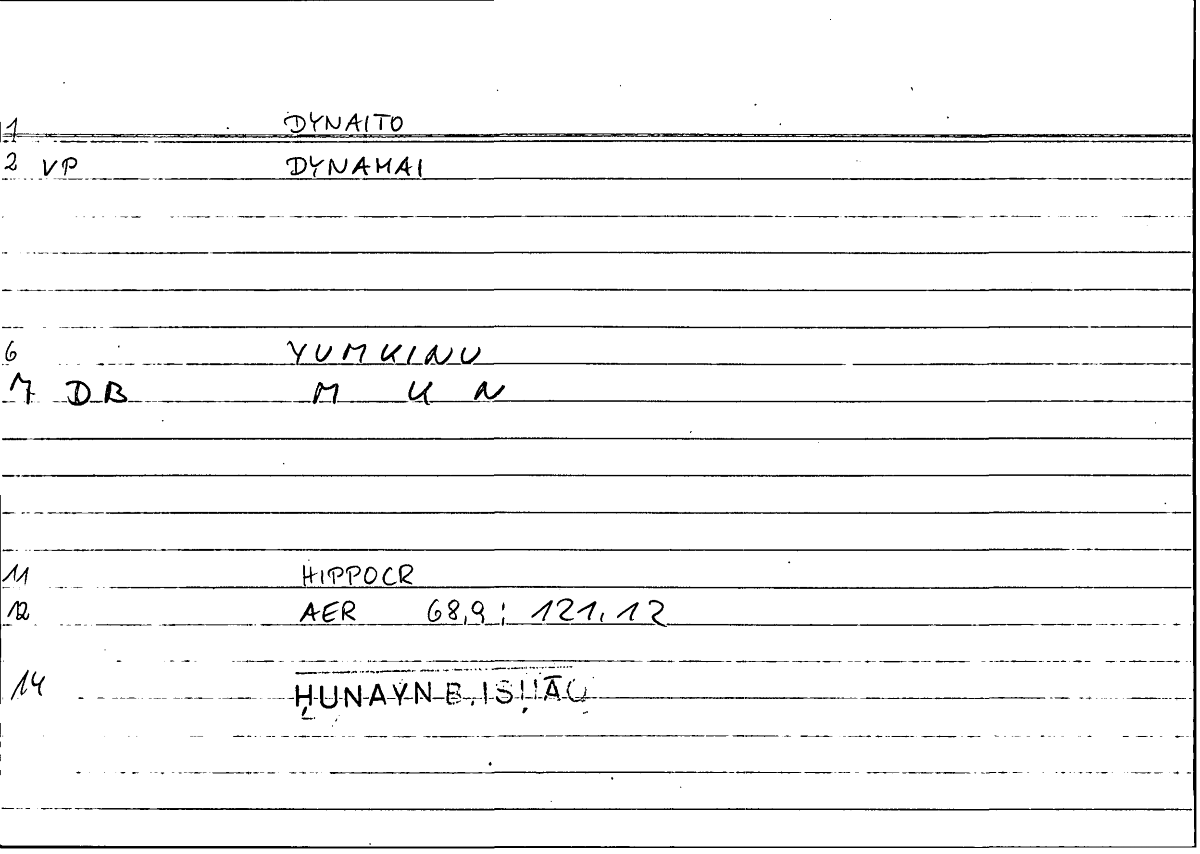 1 DYNAITO
2 VP DYNAMAI
6 YUMKINU
7 DB M K N
11 HIPPOCR
12 AER 68,9; 121,12
14 ḤUNAYN B. ISḤĀQ